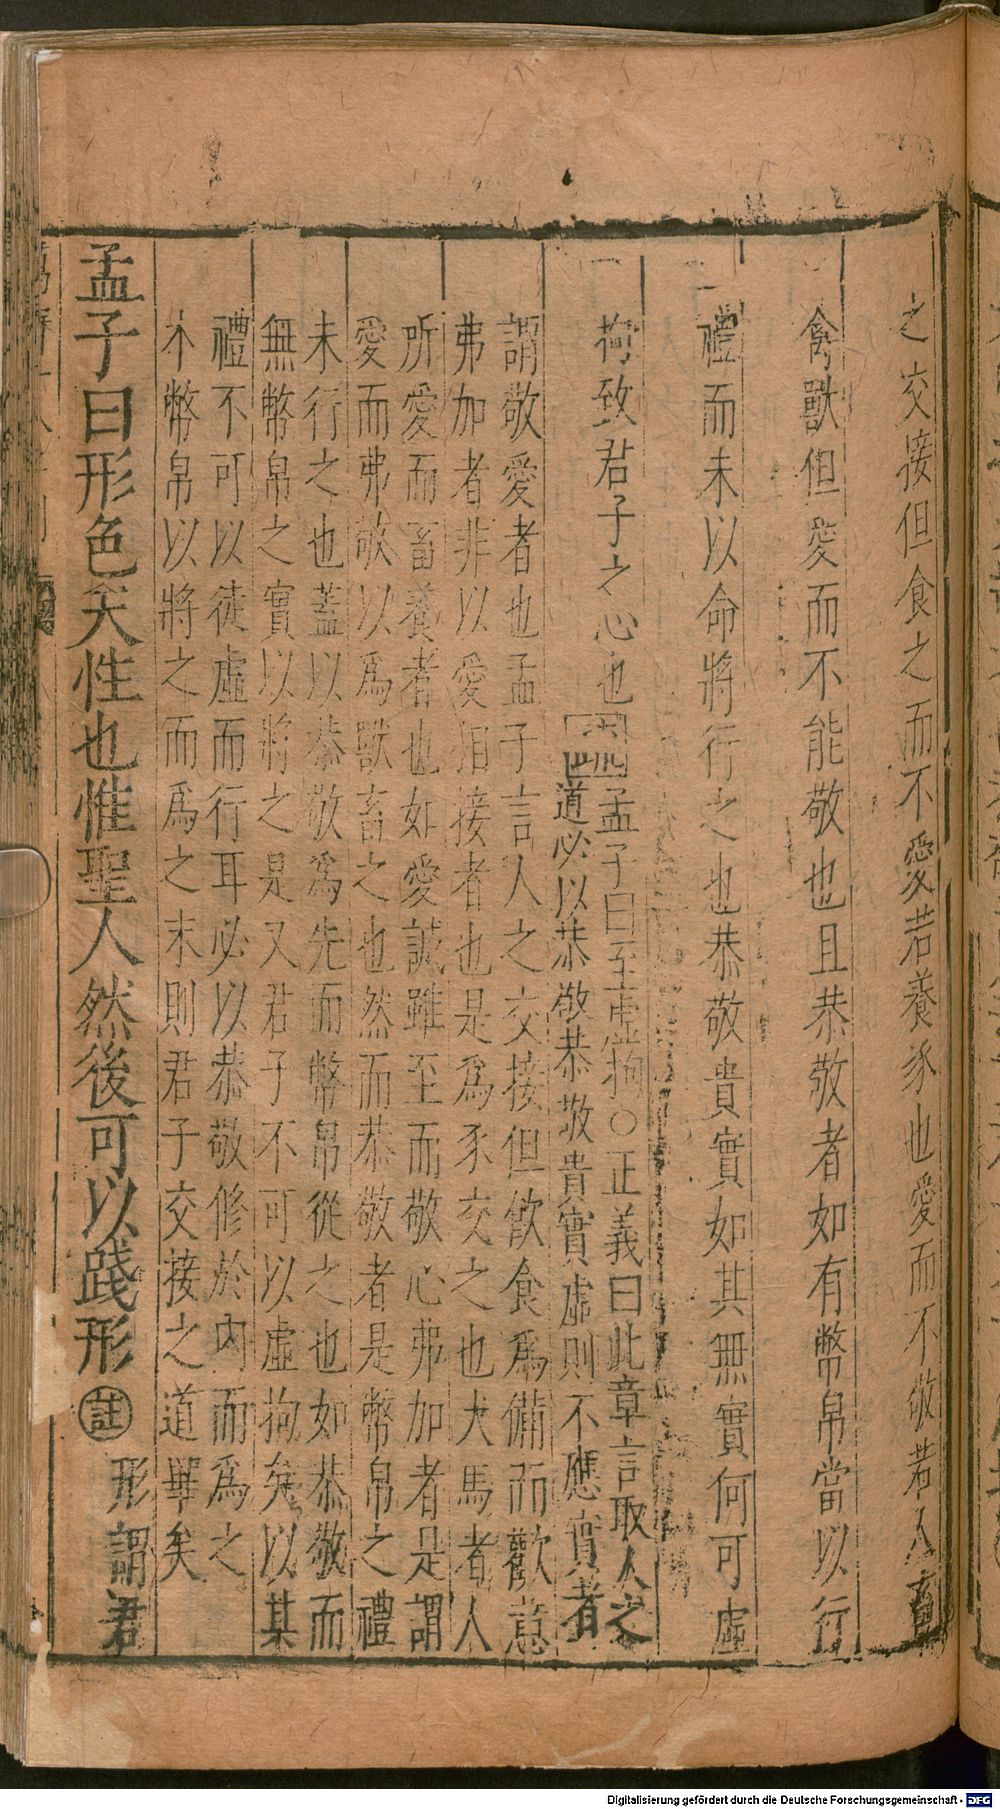 之交接但食之而不愛若養豕也愛而不敬若人畜
禽獸但愛而不能敬也且恭敬者如有幣帛當以行
禮而未以命將行之也恭敬貴實如其無實何可虛
拘致君子之心也
疏
孟子曰至虛拘〇正義曰此章言取人之
道必以恭敬恭敬貴實虛則不應實者
謂敬愛者也孟子言人之交接但飲食爲備而歡意
弗加者非以愛相接者也是爲豕交之也犬馬者人
所愛而畜養者也如愛誠雖至而敬心弗加者是謂
愛而弗敬以爲獸畜之也然而恭敬者是幣帛之禮
未行之也蓋以恭敬爲先而幣帛從之也如恭敬而
無幣帛之實以將之是又君子不可以虛拘矣以其
禮不可以徒虛而行耳必以恭敬修於內而爲之
本幣帛以將之而爲之末則君子交接之道畢矣
孟子曰形色天性也惟聖人然後可以踐形 註 形謂君
Digitalisierung gefördert durch die Deutsche Forschungsgemeinschaft - DFG